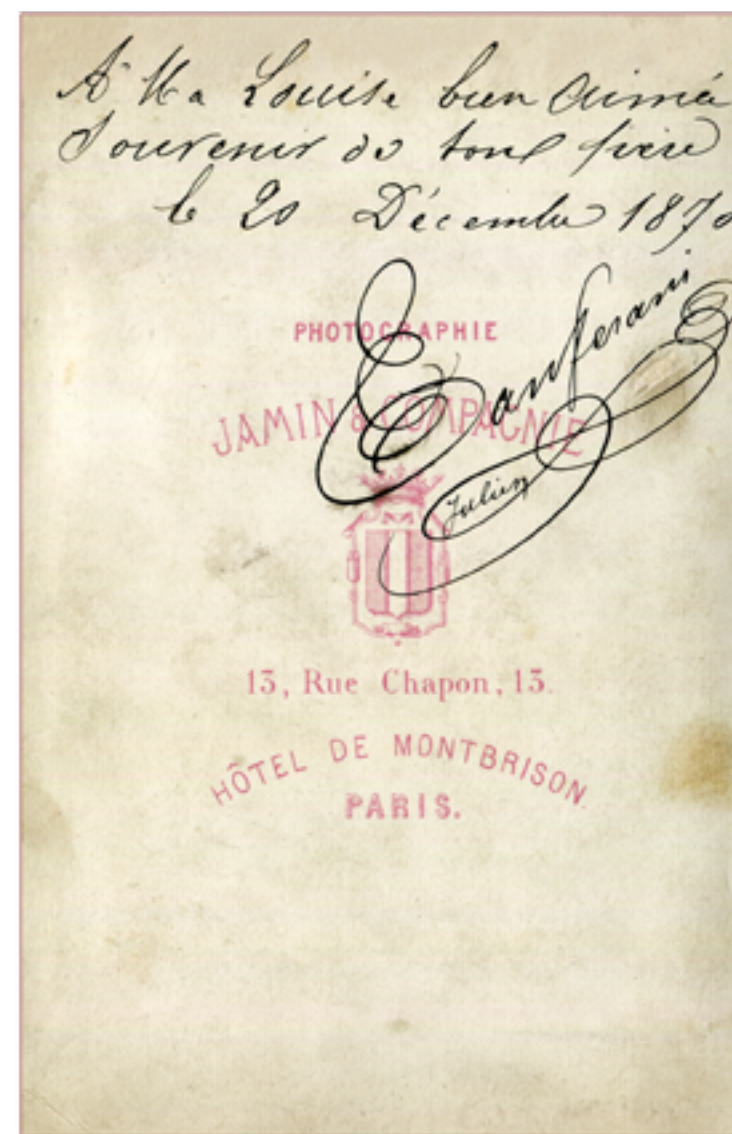 A Ma Louise bien Aimée
Souvenir de ton frère
le 20 Décembre 1870
PHOTOGRAPHIE
JAMIN & COMPAGNIE
Julien
13, Rue Chapon, 13.
HÔTEL DE MONTBRISON.
PARIS.